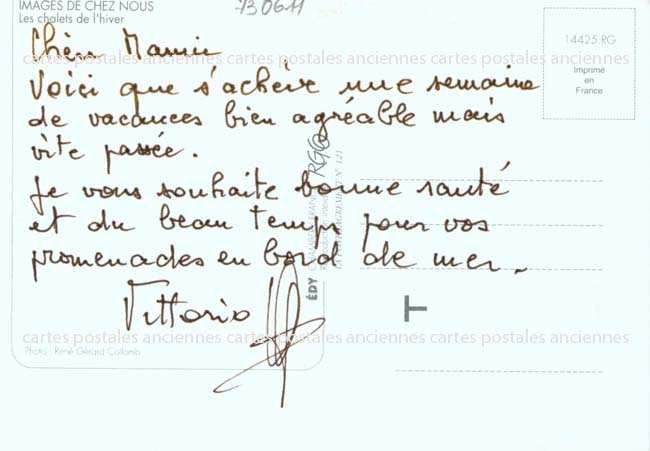 IMAGES DE CHEZ NOUS
Les chalets de l'hiver
730611
14425.RG
Imprimé
en
France
Chère Mamie
cartes postales anciennes cartes postales anciennes cartes postales anciennes
Voici que s'achève une semaine
de vacances bien agréable mais
vite passée.
Je vous souhaite bonne santé
et du beau temps pour vos
promenades en bord de mer.
Vittorio
RG
ÉDY
T
cartes postales anciennes cartes postales anciennes cartes postales anciennes
Photo : René Gérard Collomb